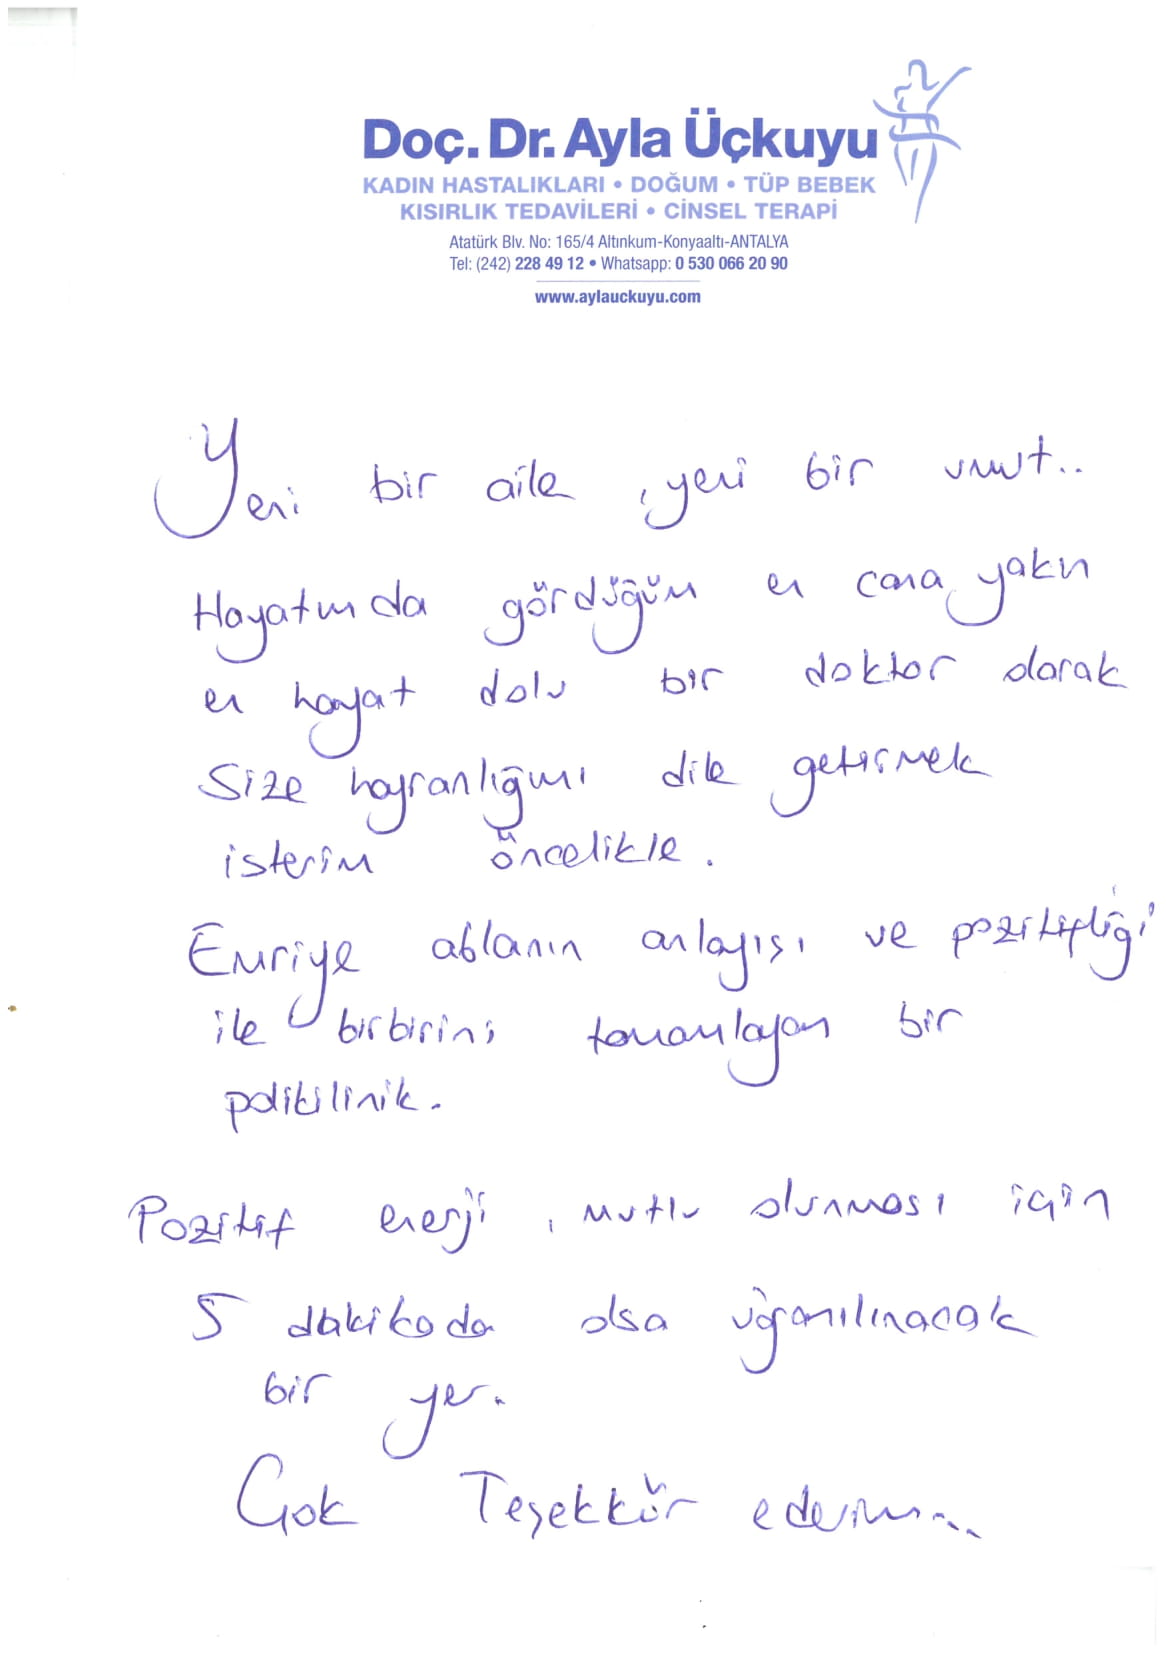 Doç. Dr. Ayla Üçkuyu
KADIN HASTALIKLARI • DOĞUM • TÜP BEBEK
KISIRLIK TEDAVİLERİ • CİNSEL TERAPİ
Atatürk Blv. No: 165/4 Altınkum-Konyaaltı-ANTALYA
Tel: (242) 228 49 12 • Whatsapp: 0 530 066 20 90
www.aylauckuyu.com
Yeni bir aile, yeni bir umut..
Hayatımda gördüğüm en cana yakın
en hayat dolu bir doktor olarak
Size hayranlığımı dile getirmek
isterim öncelikle.
Emriye ablanın anlayışı ve pozitifliği
ile birbirini tamamlayan bir
politilinik.
Pozitif enerji, mutlu olunması için
5 dakikada olsa uğranılınacak
bir yer.
Çok Teşekkür ederim...